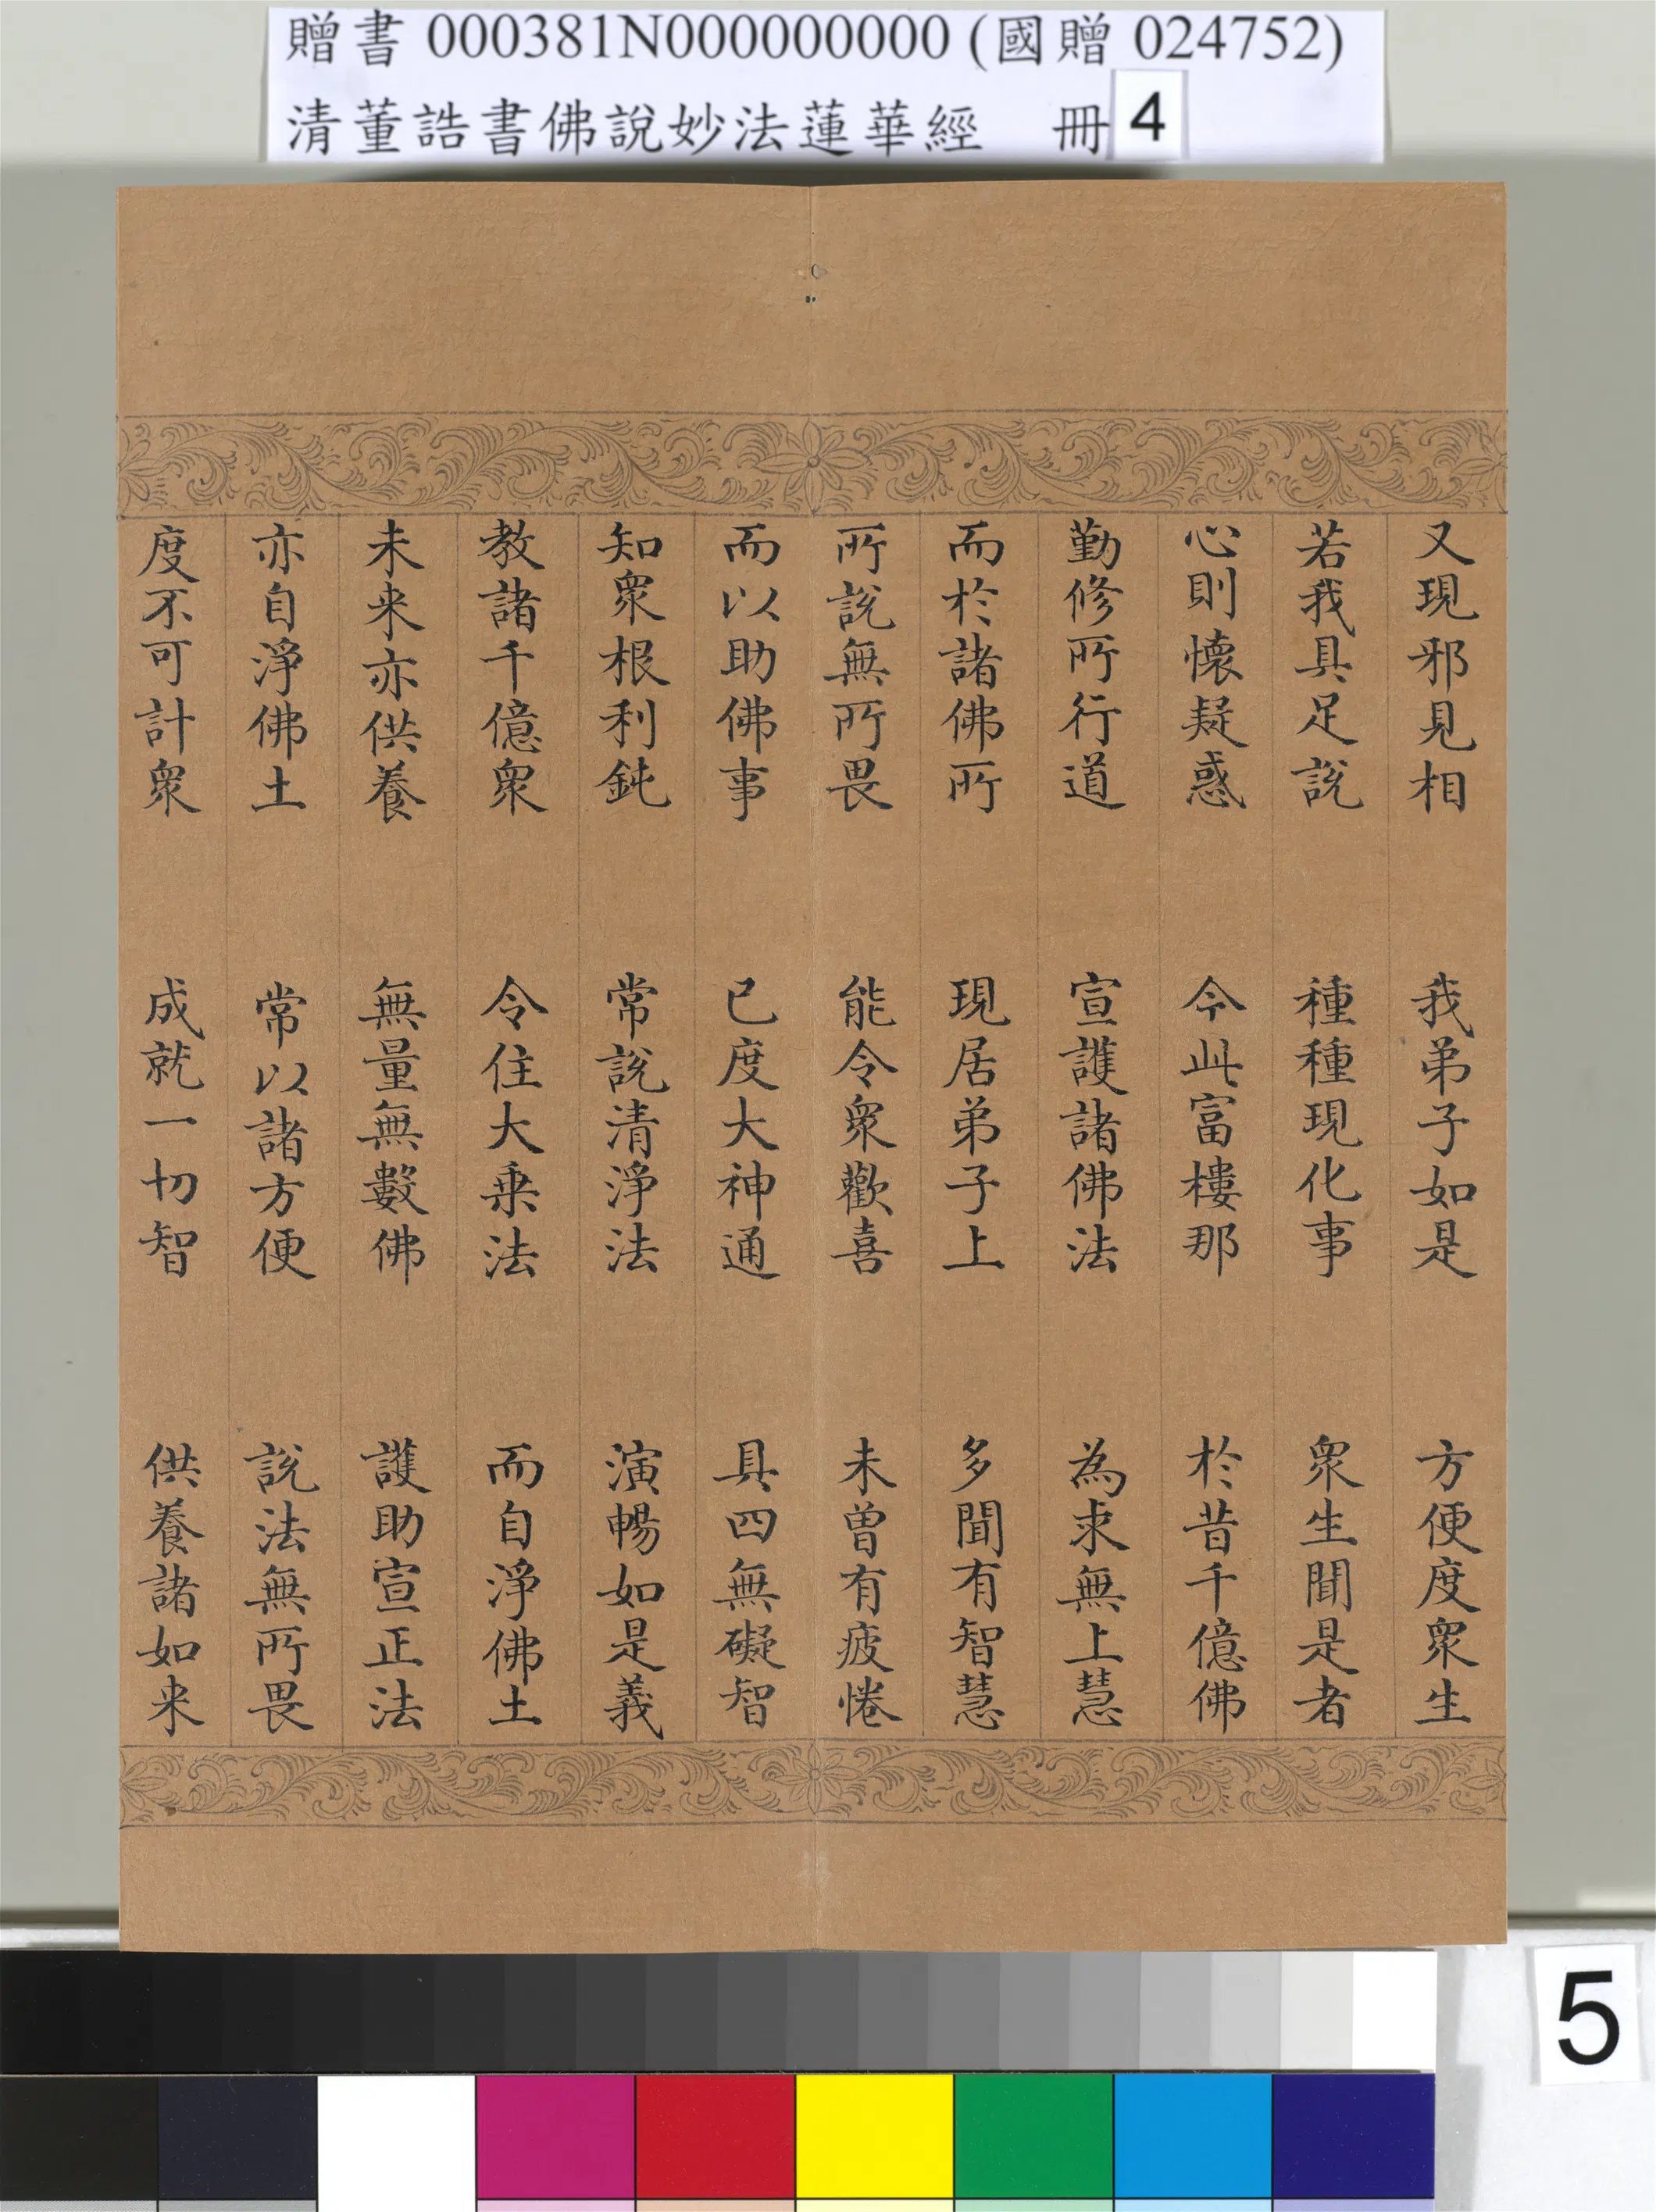 贈書 000381N000000000 (國贈 024752)
清董誥書佛說妙法蓮華經 冊 4
又現邪見相 我弟子如是 方便度衆生
若我具足說 種種現化事 衆生聞是者
心則懷疑惑 今此富樓那 於昔千億佛
勤修所行道 宣護諸佛法 為求無上慧
而於諸佛所 現居弟子上 多聞有智慧
所說無所畏 能令衆歡喜 未曾有疲惓
而以助佛事 已度大神通 具四無礙智
知衆根利鈍 常說清淨法 演暢如是義
教諸千億衆 令住大乘法 而自淨佛土
未來亦供養 無量無數佛 護助宣正法
亦自淨佛土 常以諸方便 說法無所畏
度不可計衆 成就一切智 供養諸如來
5